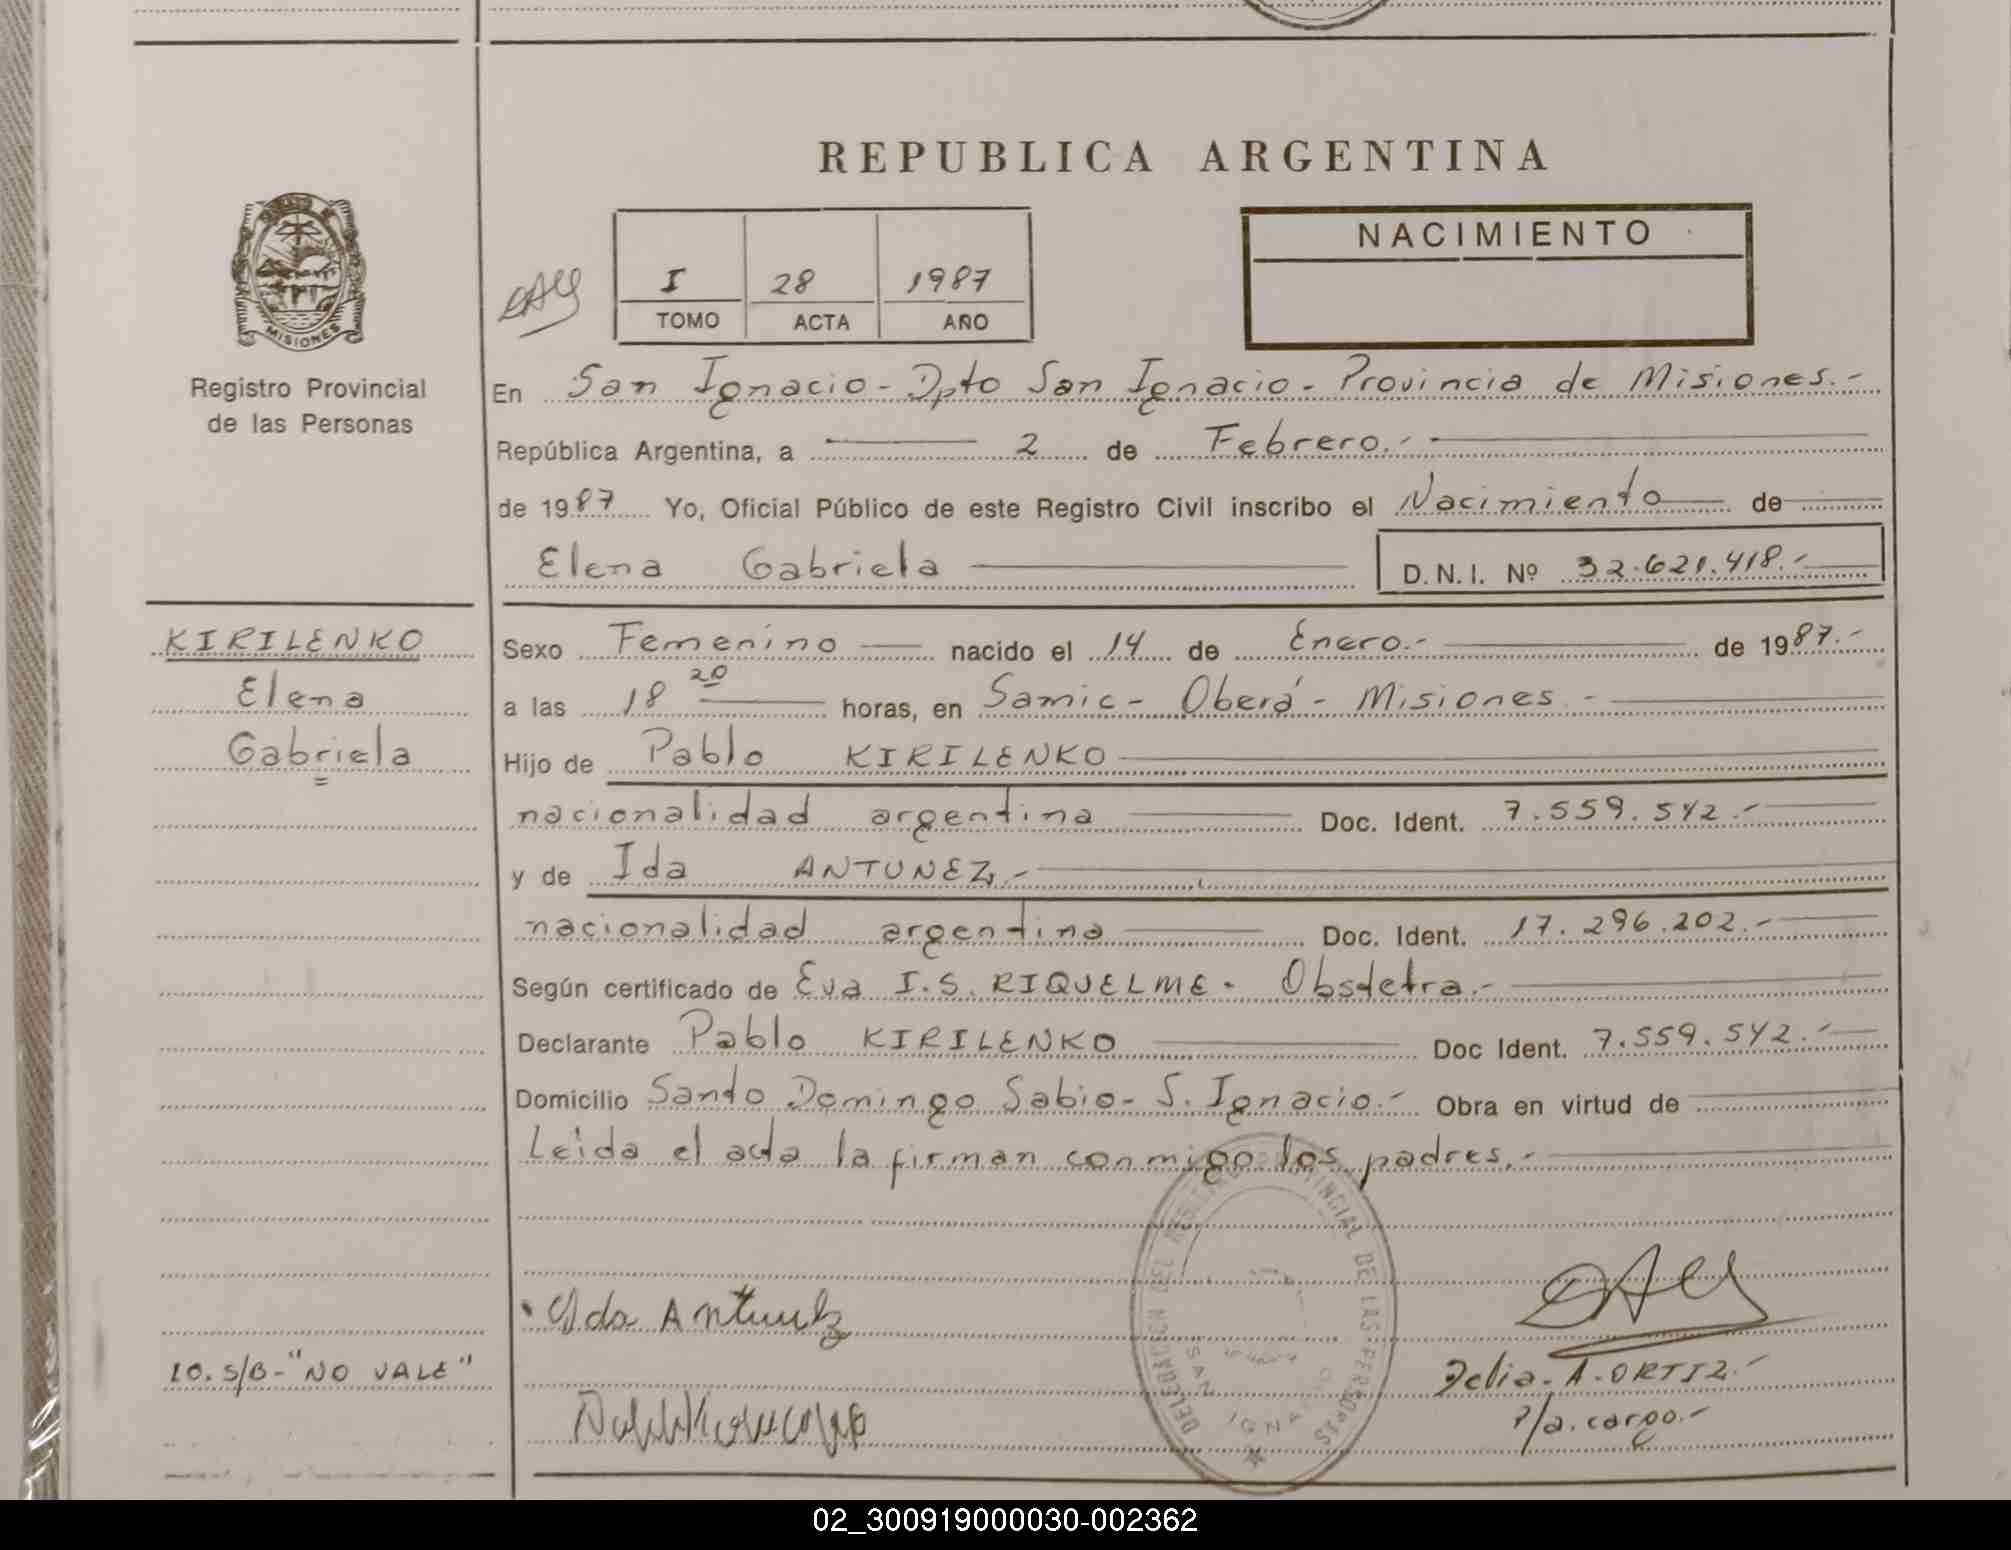 REPUBLICA ARGENTINA
NACIMIENTO
I 28 1987
TOMO ACTA AÑO
MISIONES
Registro Provincial
de las Personas
En San Ignacio - Dpto San Ignacio - Provincia de Misiones.-
República Argentina, a 2 de Febrero.-
de 1987 Yo, Oficial Público de este Registro Civil inscribo el Nacimiento de
Elena Gabriela D.N.I. Nº 32.621.418.-
KIRILENKO
Elena
Gabriela
Sexo Femenino nacido el 14 de Enero.- de 1987.-
a las 18 20 horas, en Samic - Oberá - Misiones -
Hijo de Pablo KIRILENKO
nacionalidad argentina Doc. Ident. 7.559.542.-
y de Ida ANTUNEZ.-
nacionalidad argentina Doc. Ident. 17.296.202.-
Según certificado de Eva I.S. RIQUELME. Obstetra.-
Declarante Pablo KIRILENKO Doc Ident. 7.559.542.-
Domicilio Santo Domingo Sabio - S. Ignacio.- Obra en virtud de
Leida el acta la firman conmigo los padres.-
DELEGACION DEL REGISTRO PROVINCIAL DE LAS PERSONAS
SAN IGNACIO
Ida Antunez
10. S/B - "NO VALE"
Delia. A. ORTIZ.-
P/a. cargo.-
02_300919000030-002362